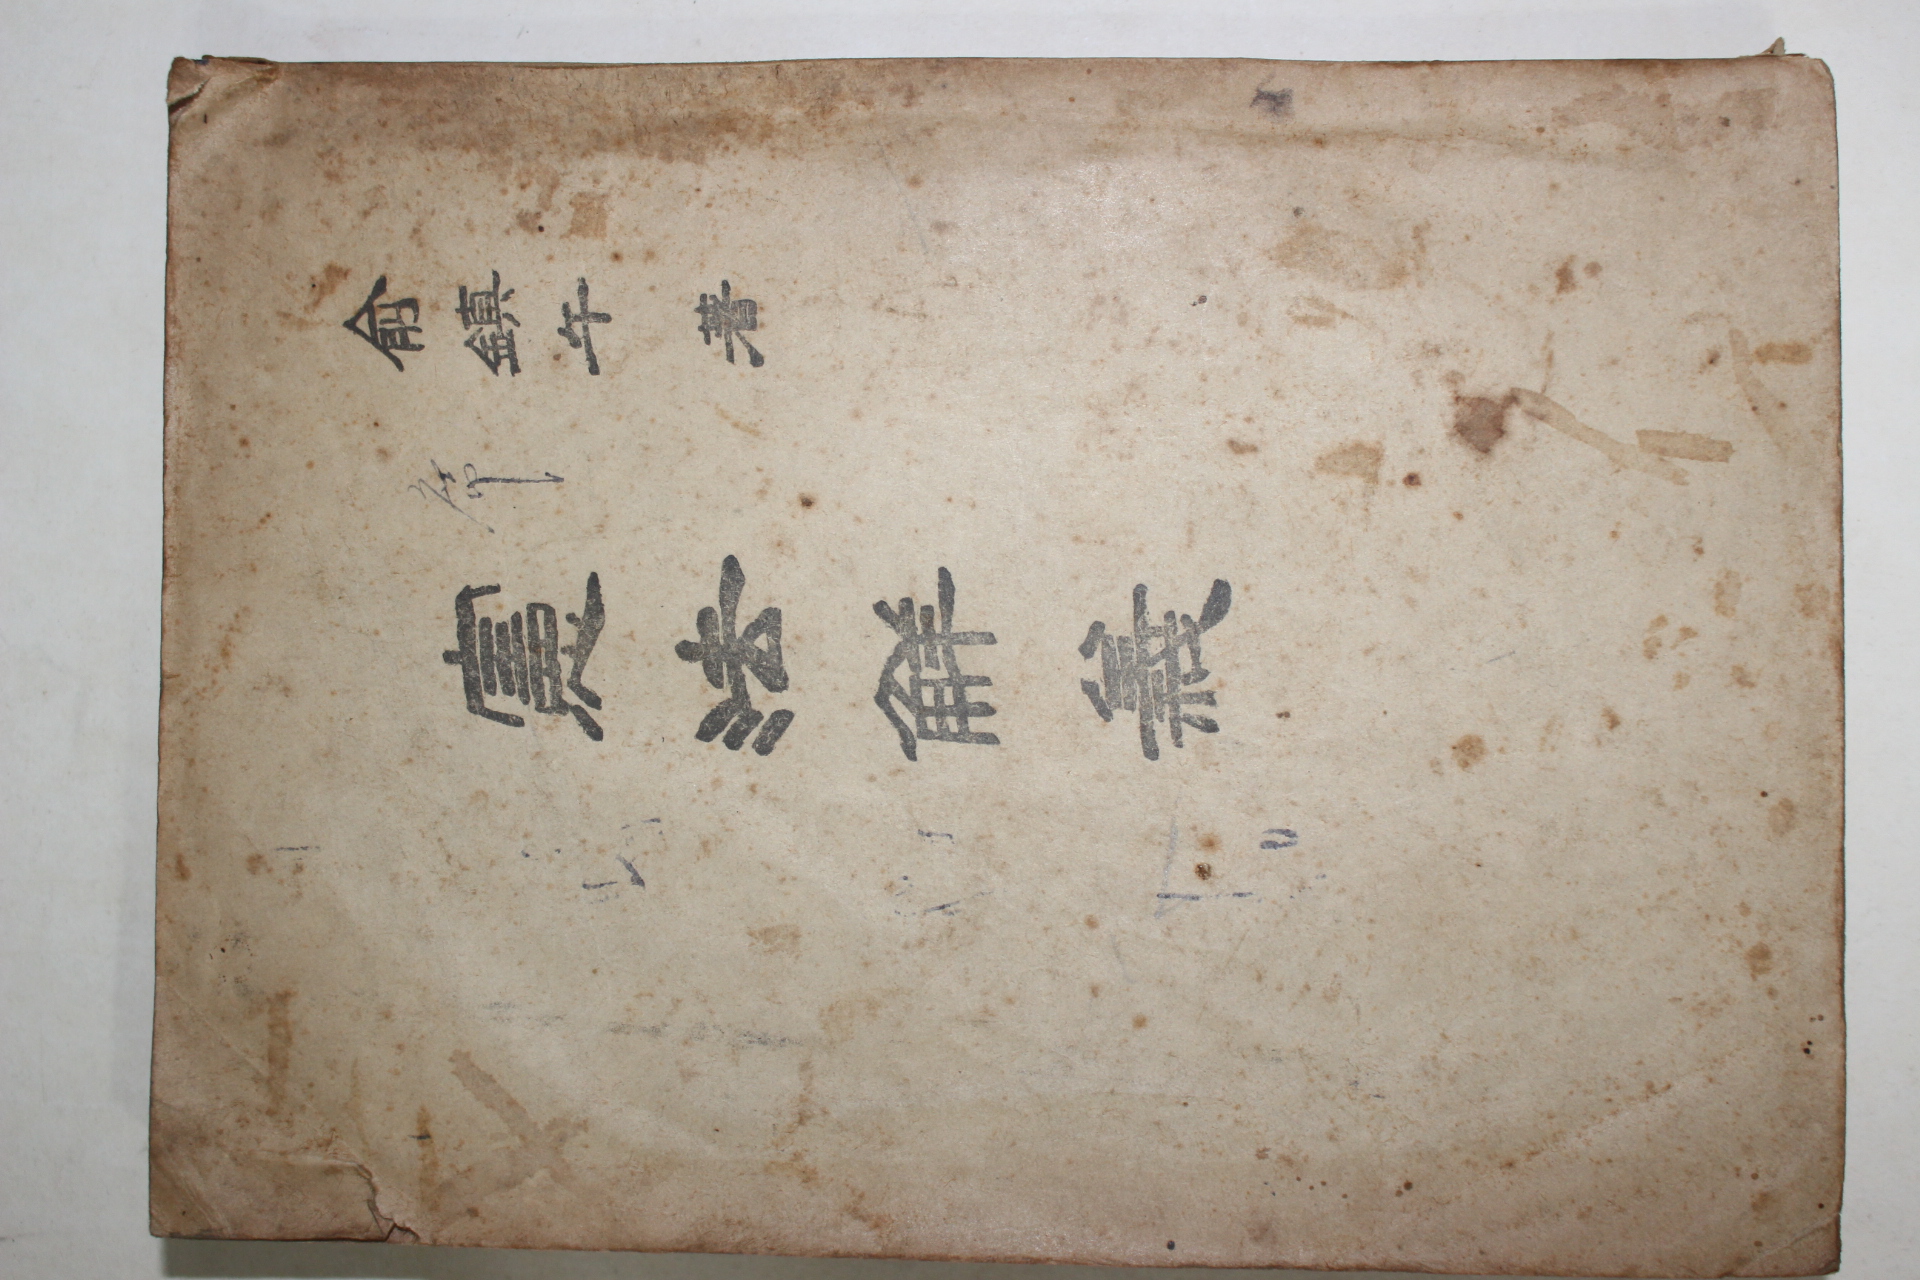 兪鎮午 著
憲法解義